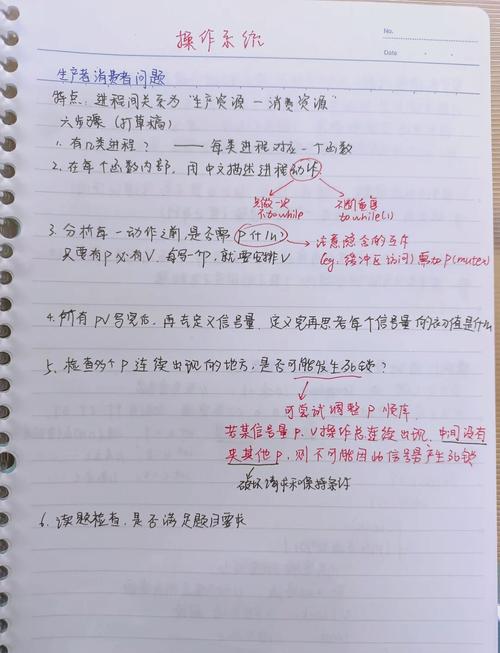 操作系统
No.
Date
生产者消费者问题
特点：进程间关系为"生产资源—消费资源"
六步骤（打草稿）
1. 有几类进程？ —— 每类进程对应一个函数
2. 在每个函数内部，用中文描述进程动作
只做一次 不断重复
不加while 加while(1)
3. 分析每一动作之前，是否需P什么 → 注意隐含的互斥
只要有P必有V，每写一个P，就要安排V (eg: 缓冲区访问) 需加P(mutex)
4. 所有PV写完后，再去定义信号量，定义完再思考每个信号量的初值是什么
5. 检查多个P连续出现的地方，是否可能发生死锁？
可尝试调整P顺序
若某信号量P、V操作总连续出现，中间没有
夹其他P，则不可能因此信号量产生死锁
破坏请求和保持条件
6. 读题检查，是否满足题目要求